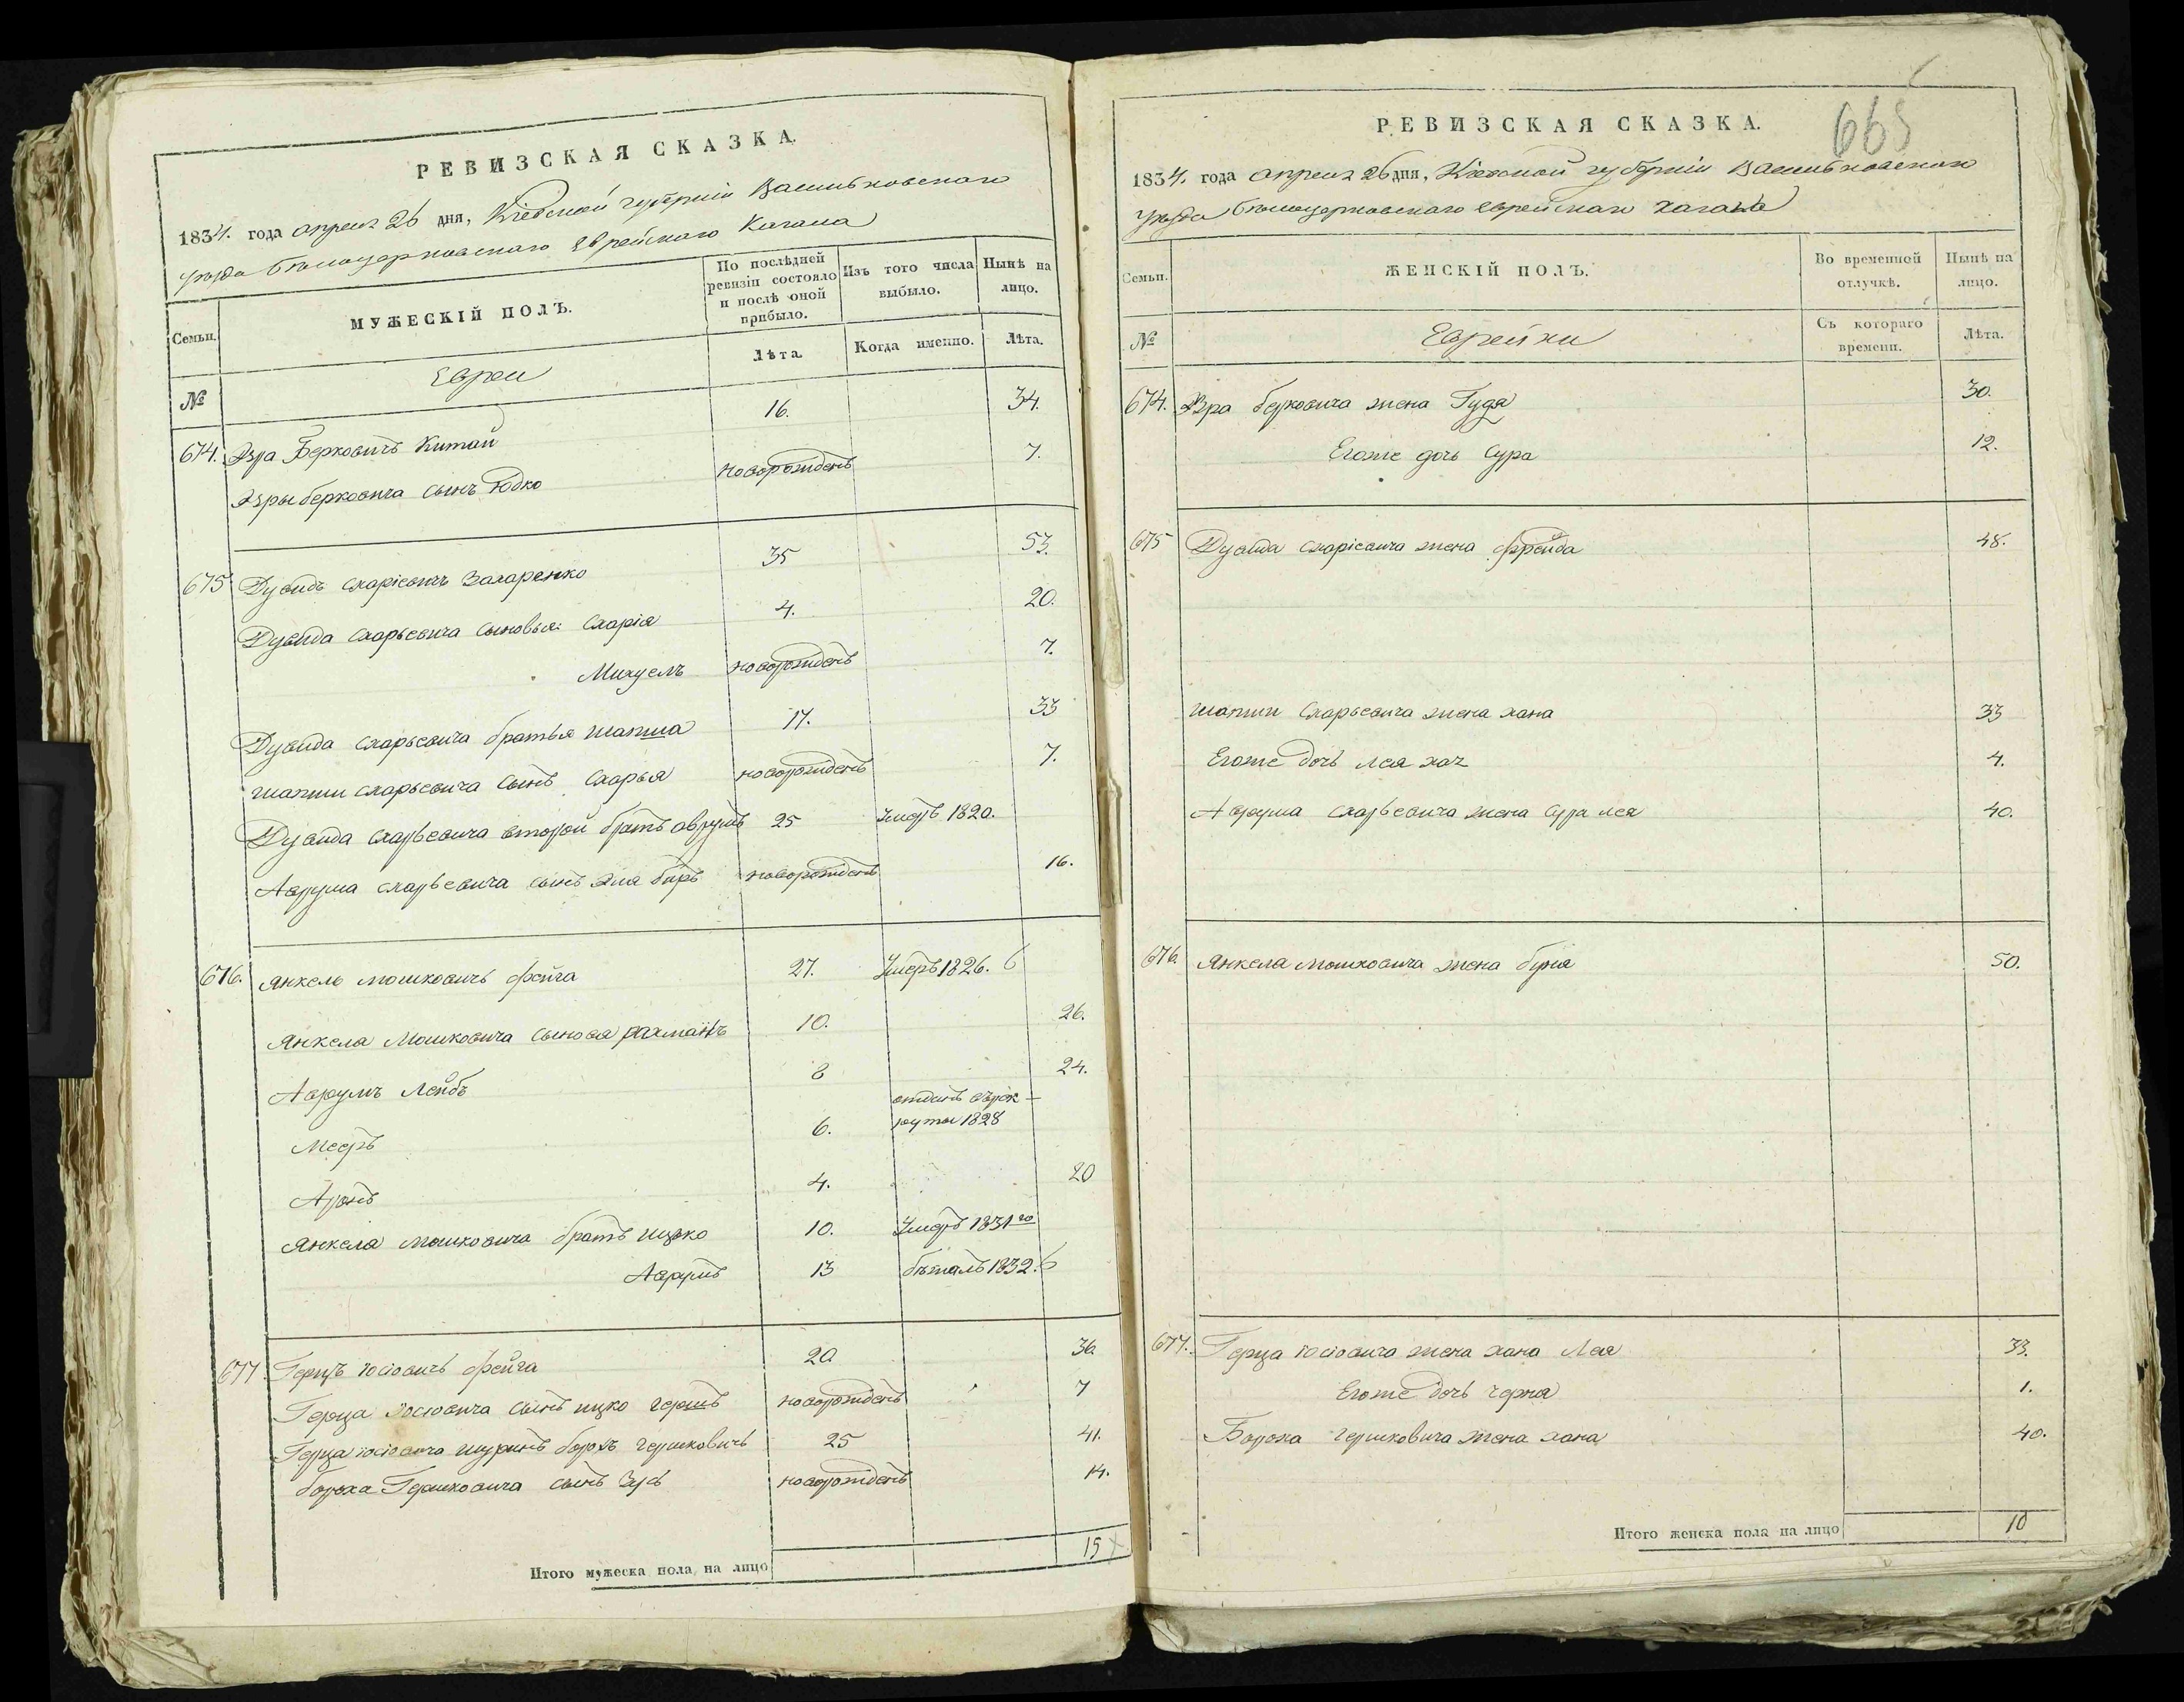 РЕВИЗСКАЯ СКАЗКА.
1834. года апреля 26 дня, Кіевской губерніи Васильковскаго
уезда Белоцерковскаго Еврейскаго Кагала
Семьи.
МУЖЕСКІЙ ПОЛЪ.
По послѣдней ревизіи состояло и послѣ оной прибыло.
Изъ того числа выбыло.
Нынѣ на лицо.
№
Евреи
Лѣта.
Когда именно.
Лѣта.
674. Эзра Берковичъ Китай 16. 34.
Эзры берковича сынъ Юдко новорожденъ 7.
675 Дувидъ схарiевичъ Захаренко 35 53.
Дувида схарьевича сыновья: Схарія 4. 20.
Михуелъ новорожденъ 7.
Дувида схарьевича братья шапша 17. 33
шапши схарьевича сынъ Схарья новорожденъ 7.
Дувида схарьевича второй братъ аврумъ 25 умеръ 1820.
Аврума схарьевича сынъ Эля беръ новорожденъ 16.
676. Янкель мошковичъ фейга 27. Умеръ 1826.
Янкеля Мошковича сыновя рахманъ 10. 26.
Аврумъ Лейбъ 8 24.
Мееръ 6. отданъ врек-
руты 1828
Аронъ 4. 20
Янкеля мошковича братъ ицко 10. Умеръ 1831го
Аврумъ 13 бежалъ 1832.
677. Герцъ іосіовичъ фейга 20 36
Герца іосіовича сынъ ицко гершъ новорожденъ 7
Герца іосіовича шуринъ борохъ гершковичъ 25 41.
бороха Гершковича сынъ Зусь новорожденъ 14.
Итого мужеска пола на лицо 15
РЕВИЗСКАЯ СКАЗКА.
665
1834. года апреля 26 дня, Кіевской губерніи Васильковскаго
уезда белоцерковскаго еврейскаго кагала
Семьи.
ЖЕНСКІЙ ПОЛЪ.
Во временной отлучкѣ.
Нынѣ на лицо.
№
Еврейки
Съ котораго времени.
Лѣта.
674. Эзра берковича жена Гудя 30.
Егоже дочь Сура 12.
675 Дувида схаріевича жена фрейда 48.
шапши Схарьевича жена хана 33
Егоже дочь лея 4.
Аврума схарьевича жена сура лея 40.
676. Янкеля мошковича жена буня 50.
677. Герца іосіовича жена хана Лея 33.
Егоже дочь черня 1.
Бороха гершковича жена хана 40.
Итого женска пола на лицо 10